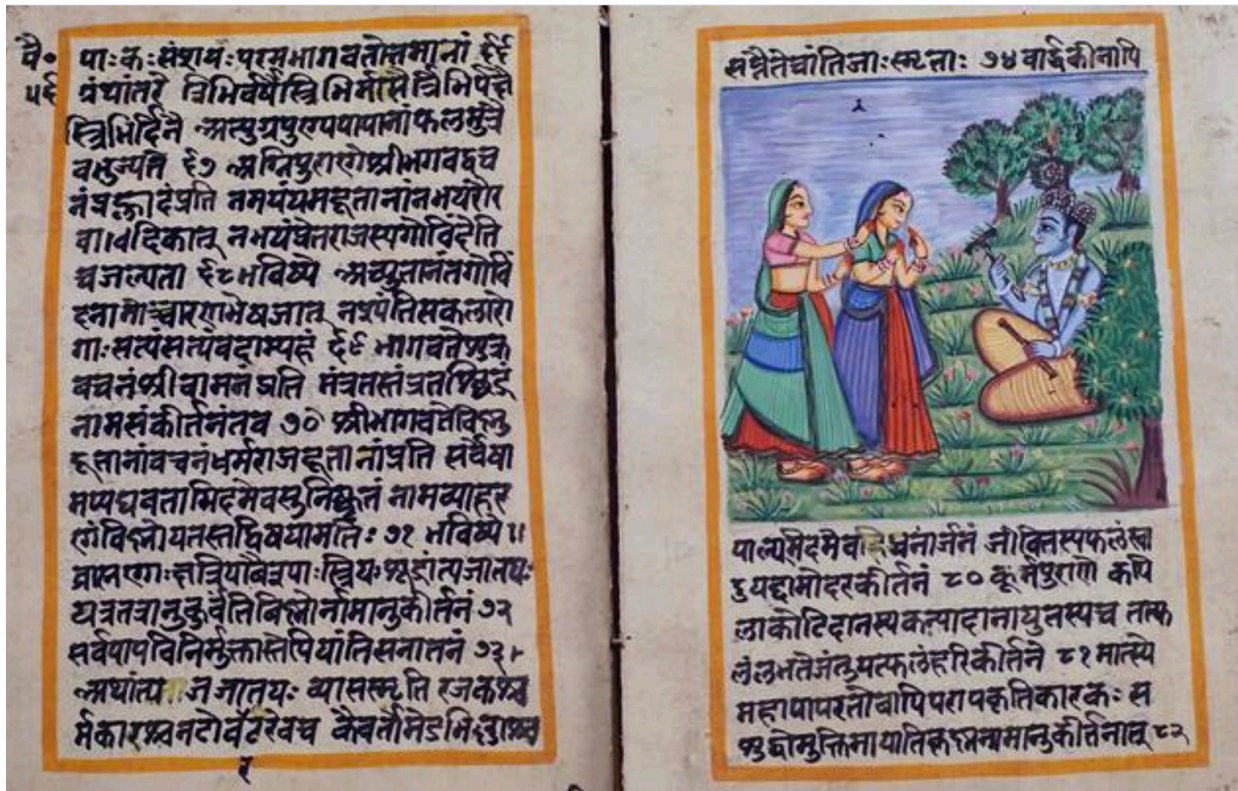 वै॰ पाः कः संशयः परमभागवतोत्तमानां ६६
ग्रंथांतरे त्रिभिर्वर्षैस्त्रिभिर्मासैस्त्रिभिपक्षै
स्त्रिभिर्दिनै अत्युग्रपुण्यपापानां फलमुत्रै
वभुज्यते ६७ अग्निपुराणे श्रीभगवद्वच
नंप्रह्लादंप्रति नमयंयमदूतानांनभयंरौर
वादिकात् नभयंप्रेतराजस्यगोविंदेति
च्चजल्पता ६८ भविष्ये अच्युतानंतगोविं
दनामोच्चारणभेषजात् नश्यंतिसकलारो
गाःसत्यंसत्यंवदाम्यहं ६९ भागवतेशुक्र
वचनंश्रीवामनंप्रति मंत्रतस्तंत्रतश्छिद्रं
नामसंकीर्तनंतव ७० श्रीभागवतेविष्णु
दूतानांवचनंधर्मराजदूतानांप्रति सर्वेषा
मप्यघवतामिदमेवसुनिष्कृतं नामव्याहर
णंविष्णोयतस्तद्विषयामतिः ७१ भविष्ये॥
ब्राह्मणाःक्षत्रियावैश्याःस्त्रियःशूद्रांत्यजातयः
यत्रतत्रानुकुर्वंतिविष्णोर्नामानुकीर्तनं ७२
सर्वपापविनिर्मुक्तास्तेपियांतिसनातनं ७३
अथांत्य जातयः व्यासस्मृति रजकश्च
र्मकारश्चनटोर्वटरेवच कैवर्तमेडभिल्लाश्च
३
सप्तैतेचांतिजाःस्मृताः ७४ वार्द्धकीनापि
पाल्यमिदमेव धनार्जनं जीवितस्यफलंस्वा
दुयद्दामोदरकीर्तनं ८० कूर्मपुराणे कपि
लाकोटिदानस्यकन्यादानायुतस्यच तत्फ
लंलभतेजंतुयत्फलंहरिकीर्तने ८१ मात्स्ये
महापापरतोवापिपरापकृतिकारकः स
शुद्धोमुक्तिमायातिकृष्णनामानुकीर्तनात् ८२